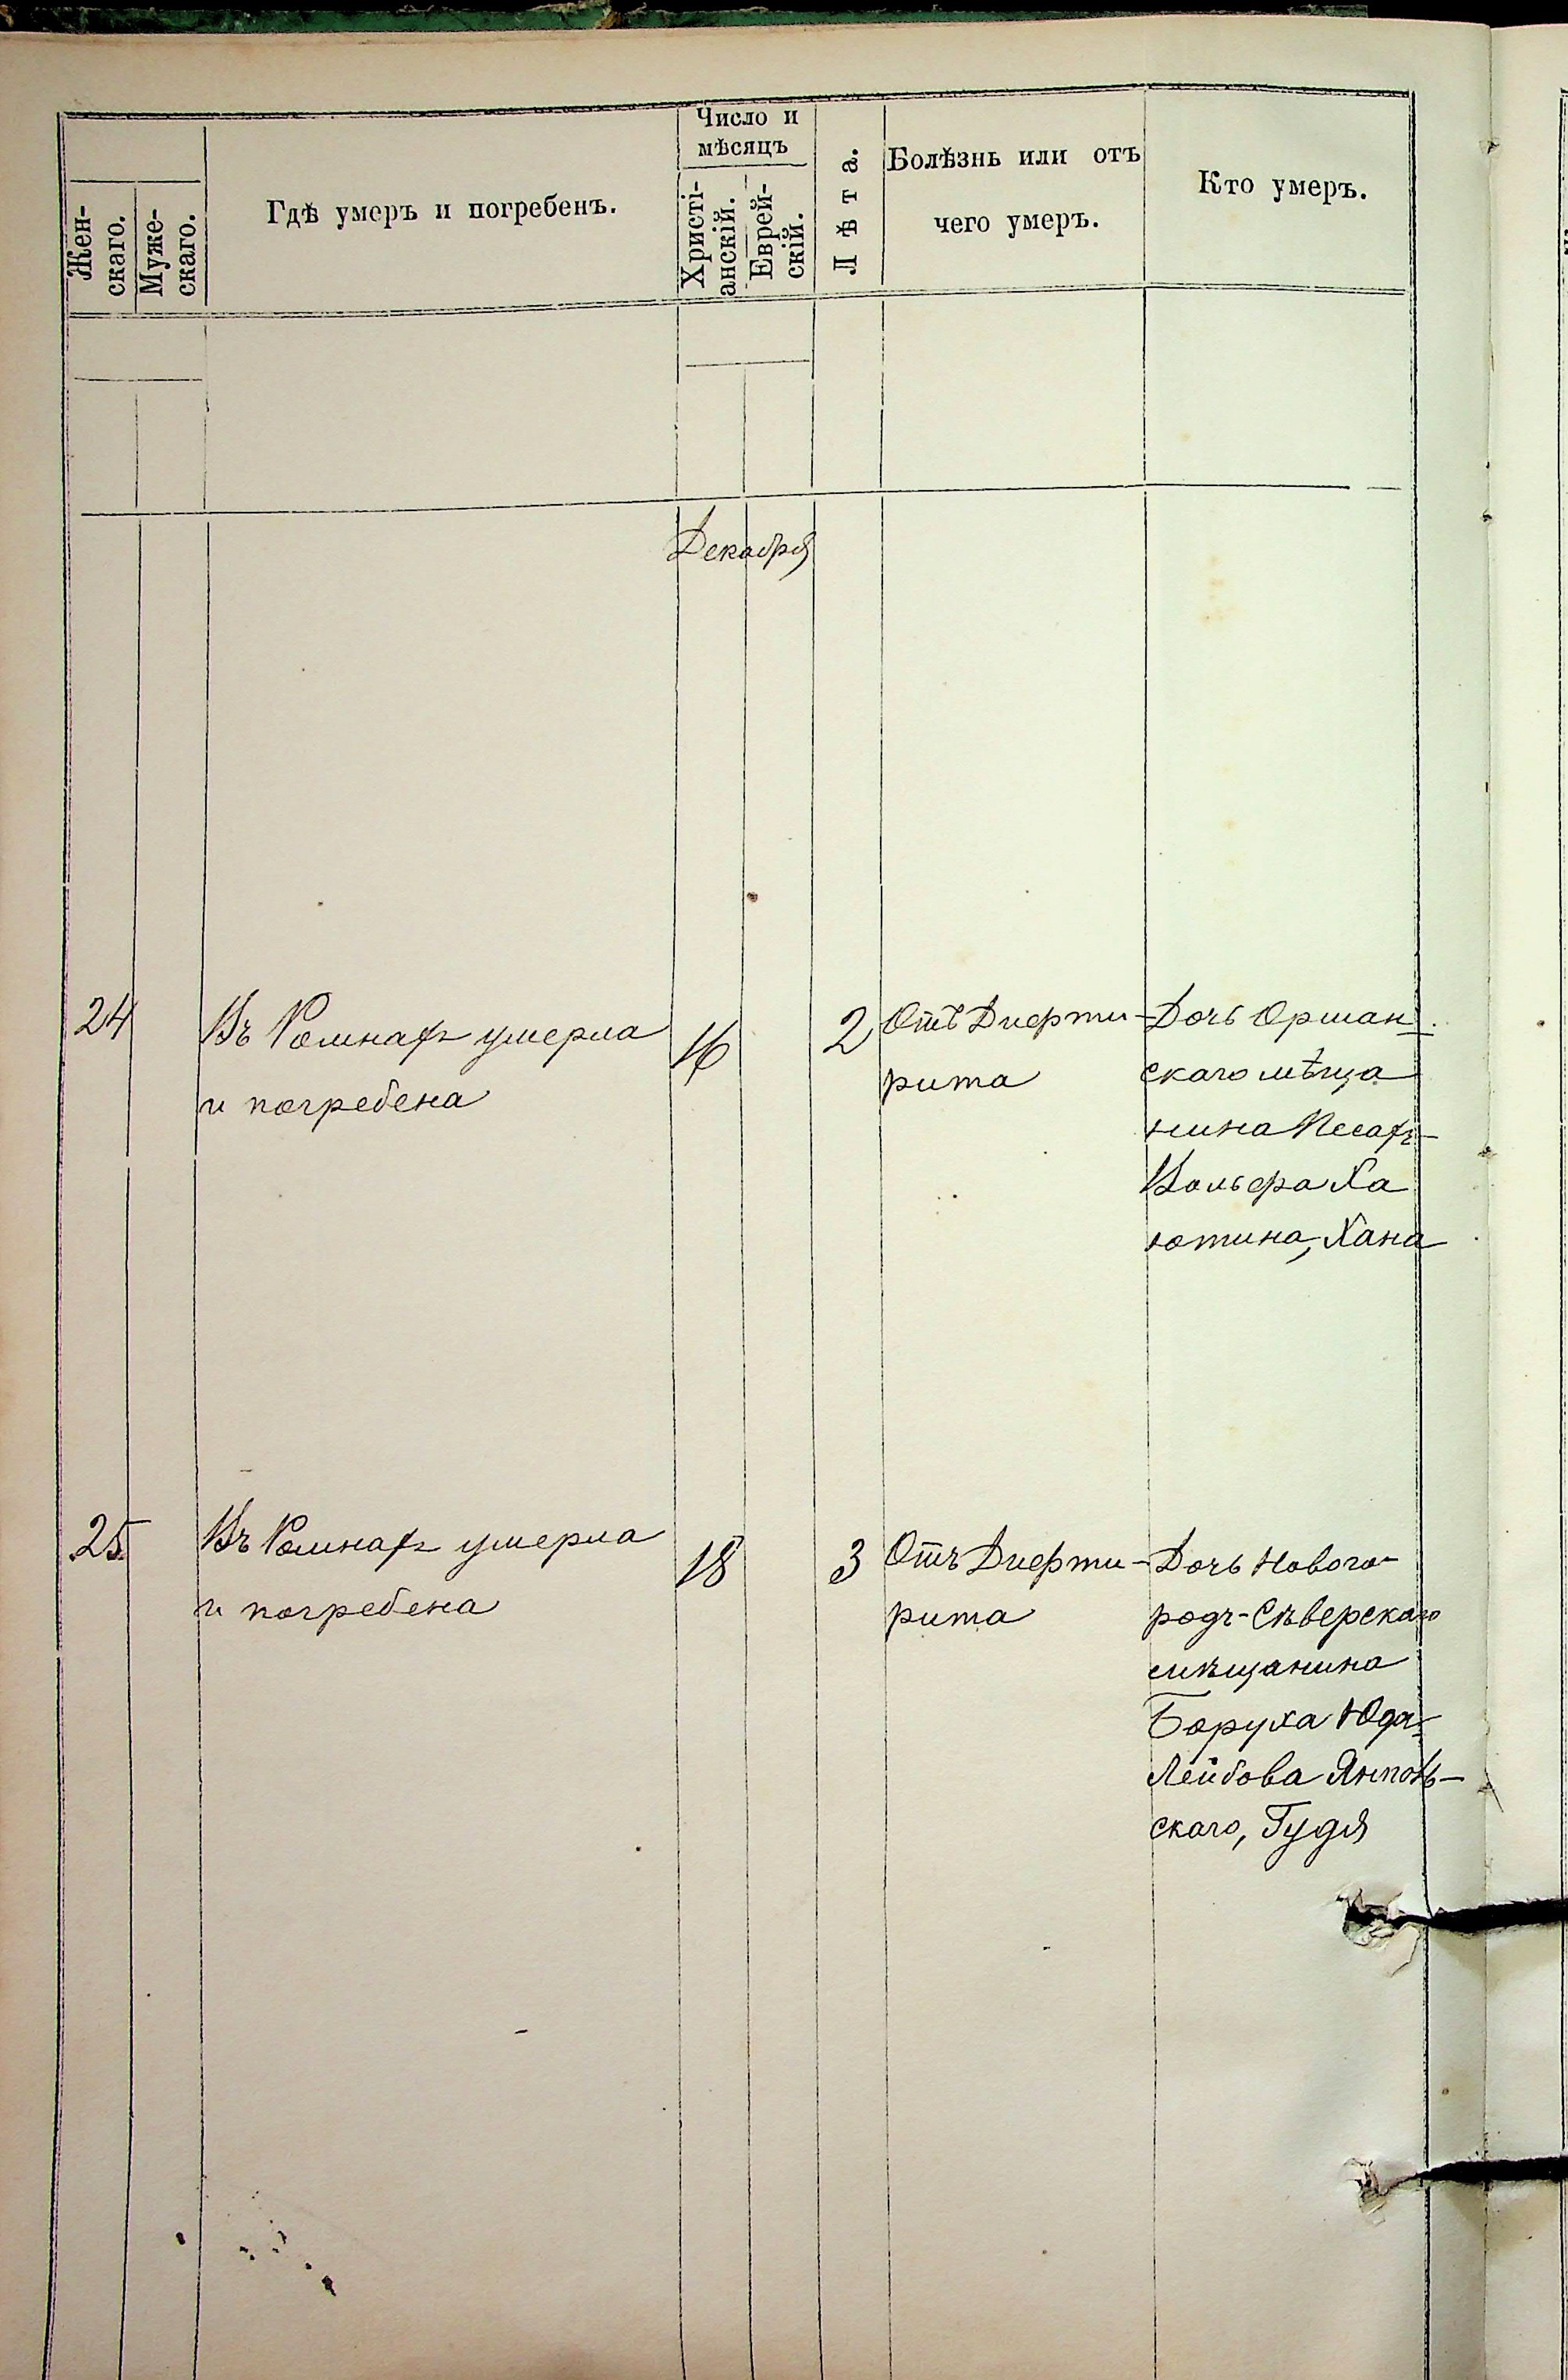 Жен-
скаго.
Муже-
скаго.
Гдѣ умеръ и погребенъ.
Число и
мѣсяцъ
Христі-
анскій.
Еврей-
скій.
Лѣта.
Болѣзнь или отъ
чего умеръ.
Кто умеръ.
Декабря
24
Въ Ромнахъ умерла
и погребена
16
2
Отъ Дифти-
рита
Дочь Оршан-
скаго мѣща
нина Песахъ-
Вольфа Ха
ютина, Хана
25
Въ Ромнахъ умерла
и погребена
18
3
Отъ Дифти-
рита
Дочь Новго-
родъ-Сѣверскаго
мѣщанина
Боруха Юда-
Лейбова Ямполь-
скаго, Гудя